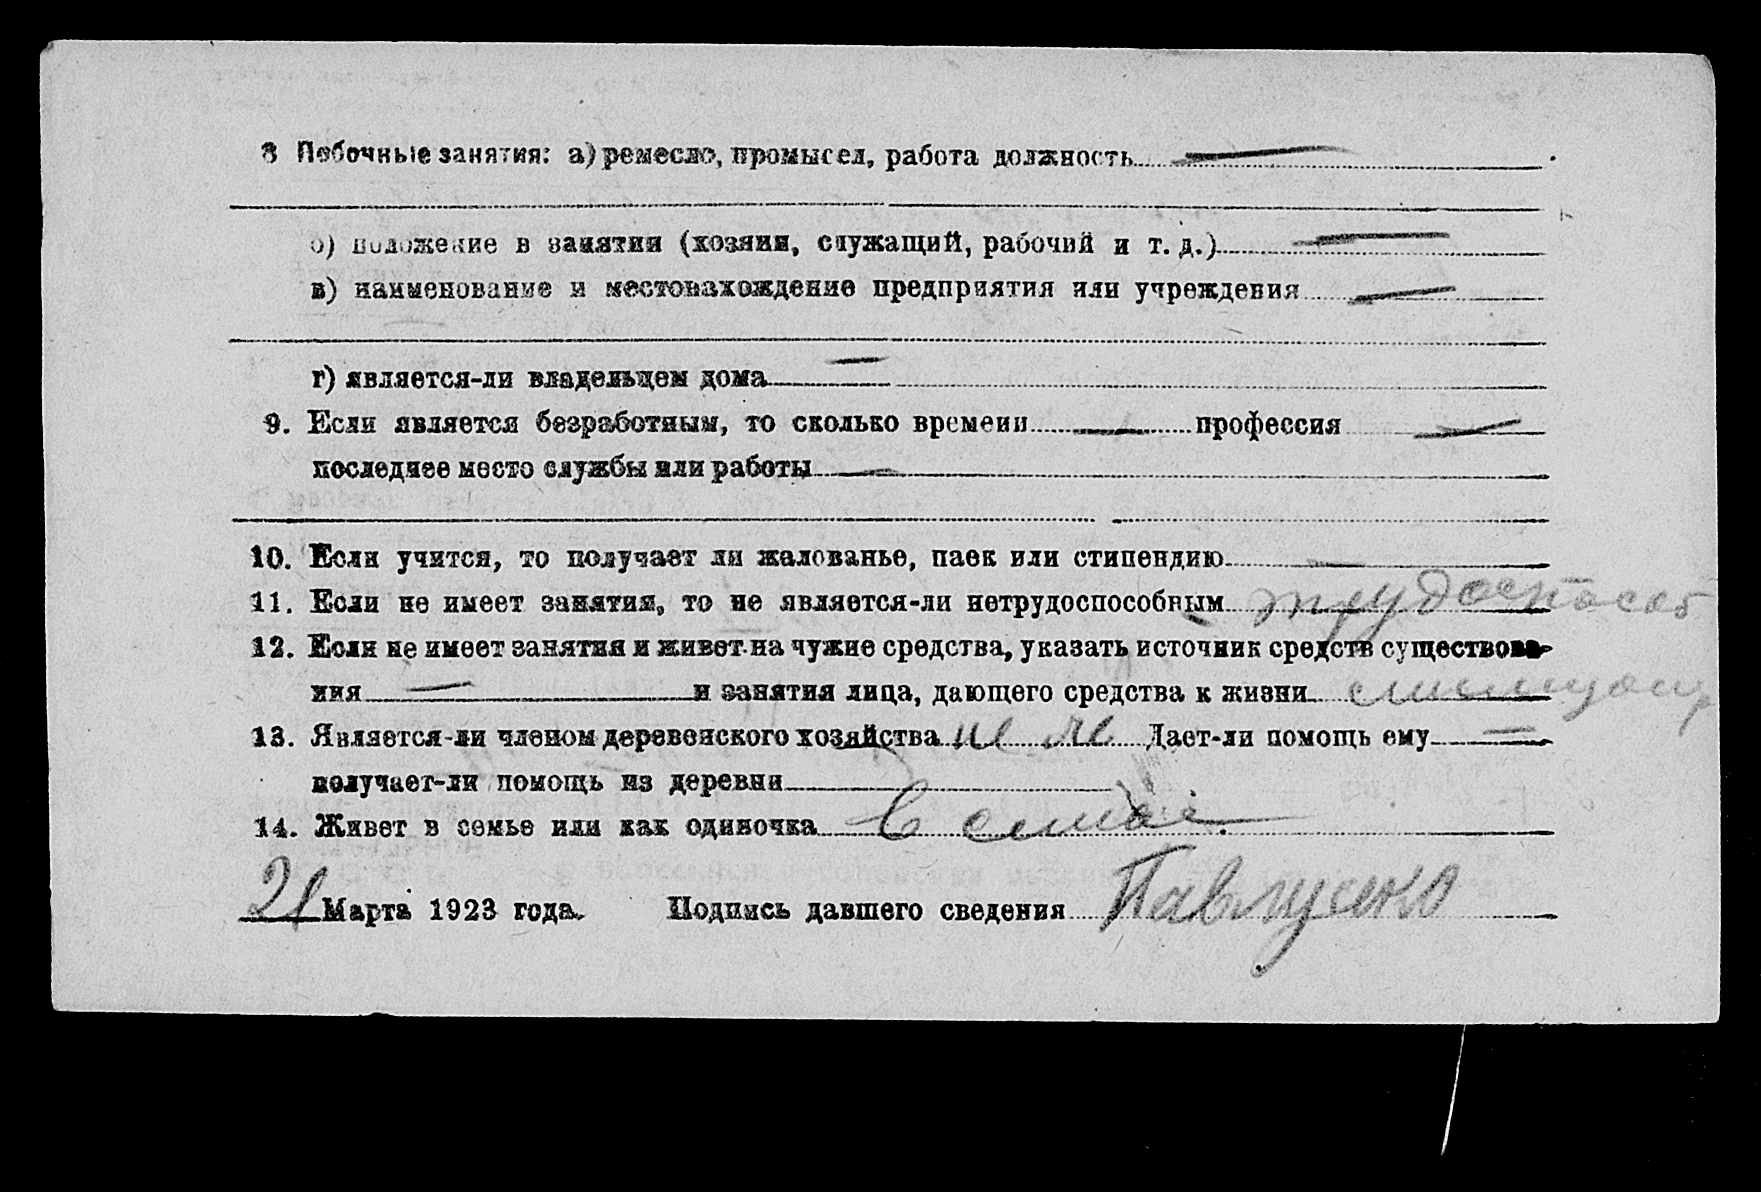 8 Побочные занятия: а) ремесло, промысел, работа должность —
б) положение в занятии (хозяин, служащий, рабочий и т. д.) —
в) наименование и местонахождение предприятия или учреждения —
г) является-ли владельцем дома —
9. Если является безработным, то сколько времени — профессия —
последнее место службы или работы —
10. Если учится, то получает ли жалованье, паек или стипендию —
11. Если не имеет занятия, то не является-ли нетрудоспособным трудоспособ
12. Если не имеет занятия и живет на чужие средства, указать источник средств существова-
ния — и занятия лица, дающего средства к жизни
13. Является-ли членом деревенского хозяйства Дает-ли помощь ему —
получает-ли помощь из деревни
14. Живет в семье или как одиночка в семье
21 Марта 1923 года. Подпись давшего сведения